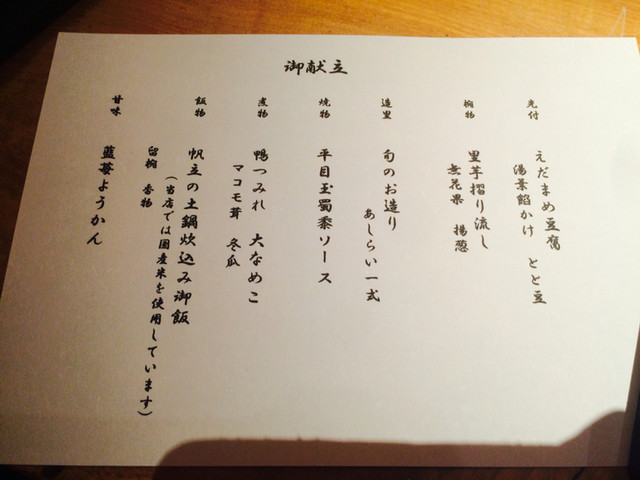 御献立
先付
えだまめ豆腐
湯葉餡かけ とと豆
椀物
里芋摺り流し
無花果 揚葱
造里
旬のお造り
あしらい一式
焼物
平目玉蜀黍ソース
煮物
鴨つみれ 大なめこ
マコモ茸 冬瓜
飯物
帆立の土鍋炊込み御飯
(当店では国産米を使用しています)
留椀 香物
甘味
藍苺ようかん